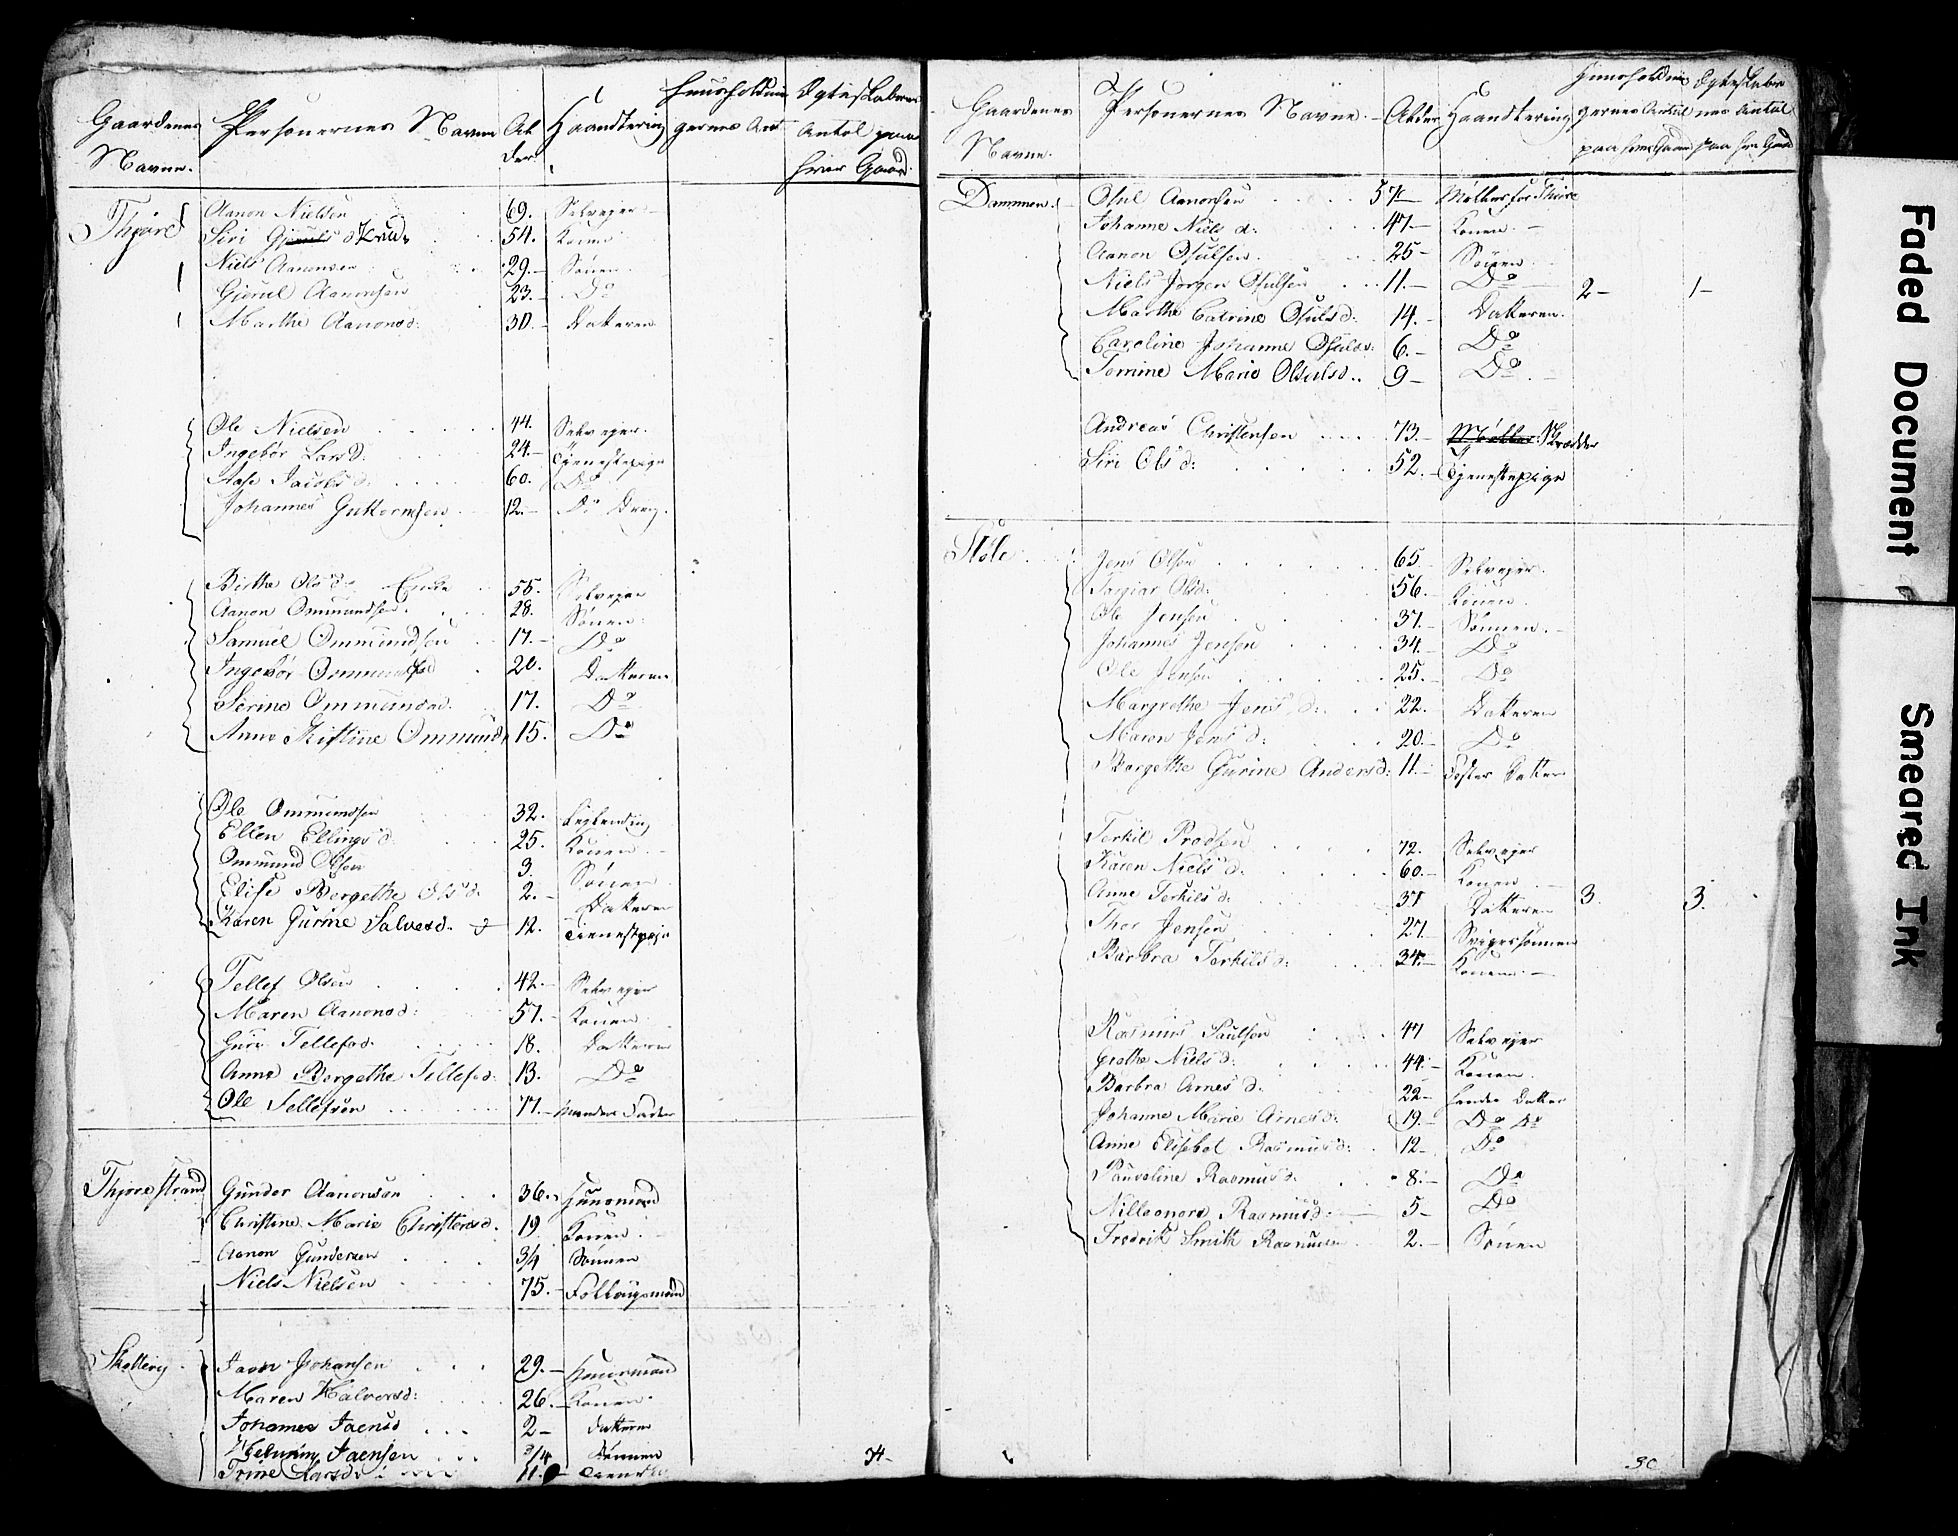 Gaardenes Navne. Personernes Navne Alder Haandtering Huusholdningernes Ant Ægteskabernes Antal paa hver Gaard.
Thjøre Aanon Nielsen 69. Selvejer
Siri 54. Konen
Niels Aanonsen 29. Sønen
Gjeruel Aanonsen 23. Do
Marthe Aanonsd: 30. Datteren
Ole Nielsen 44. Selvejer.
Ingebor Larsd: 24. Tjenestepige
Aase Jacobsd: 60. Do
Johannes Guttormsen 12. Do Dreng.
Birthe Olsd: Enke 55. Selvejer
Aanon Ommundsen. 28. Sønen:
Samuel Ommundsen 17. Do
Ingebor Ommundsd 20. Datteren
Serine Ommundsd. 17. Do
Anne Kistine Ommundsd 15. Do
Ole Ommundsen 32.
Ellen Ellingsd 25. Konen.
Ommund Olsen 3. Sønen
Elise Bergethe Olsd. 2. Datteren
Karen Gurine Salvesd. 12. Tienestpige
Tellef Olsen 42. Selvejer
Maren Aanonsd: 57. Konen.
Guri Tellefsd. 18. Datteren
Anne Bergethe Tellefsd. 13. Do
Ole Tellefsen 77. Mandens Fader
Thjørestrand Gunder Aanonsen 36. Huusmand
Christine Marie Christensd. 19 Konen.
Aanon Gundersen 3/4 Sønnen
Niels Nielsen 75. Follougsmand
Jaen Johansen 29. Huusmand
Maren Halvorsd: 26 Konen.
Johanne Jaensd 2 Datteren
Jaensen 3/4 Sønnen
Trine Larsd: 11.
34
Gaardenes Navne. Personernes Navne. Alder Haandtering Huusholdningernes Antal paa hver Gaard Ægteskabernes Antal paa hver Gaard
Dammen. Osul Aanonsen 57 Møller for Thiøre
Johanne Nielsd: 47 Konen.
Aanon Osulsen. 25 Sønen.
Niels Jørgen Osulsen 11. Do 2 1
Marthe Catrine Osulsd: 14. Datteren.
Caroline Johanne Osulsd: 6. Do
Tomine Marie Osulsd. 9 Do
Andreas Christensen 73. Møller Skredder
Siri Olsd: 52. Tjenestepige
Støle Jens Olsen 65 Selvejer.
Torjar Olsd: 56. Konen.
Ole Jensen 37. Sønnen.
Johannes Jensen 34. Do
Ole Jensen 25. Do
Margrethe Jensd: 22. Datteren
Maren Jensd: 20. Do
Bergethe Gurine Andersd: 11. Datter
Terkil Brodsen 72. Selvejer
Karen Nielsd. 60. Konen.
Anne Terkilsd: 37 Datteren 3. 3.
Thor Jensen 27 Svigersønnen
Barbra Terkilsd: 34. Konen.
Rasmus Paulsen 47 Selvejer
Grethe Nielsd: 44. Konen.
Barbra Arnesd. 22 hendes Datter
Johanne Marie Arnesd: 19. Do Do
Anne Elisebet Rasmusd: 12 Do
Pauoline Rasmusd. 8. Do
Nilleonore Rasmusd: 5 Do
Fredrik Smith Rasmusen 2. Sønen
30
Faded Document
Smeared Ink